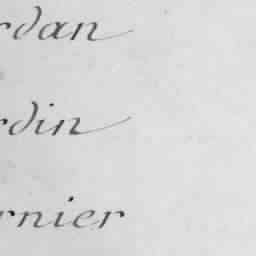 rdan
rdin
rnier